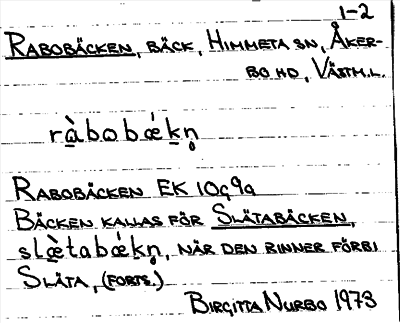 1-2
RABOBÄCKEN, BÄCK, HIMMETA SN, ÅKER-
BO HD, VÄSTM.L.
ràbobǽkn̥
RABOBÄCKEN EK 10G9a
BÄCKEN KALLAS FÖR SLÄTABÄCKEN,
slæ̀tabǽkn̥, NÄR DEN RINNER FÖRBI
SLÄTA, (FORTS.)
BIRGITTA NURBO 1973